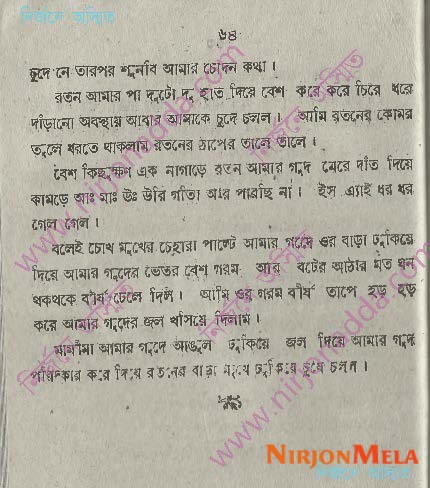 নির্জনে অস্মিত
৬৪
চুদে নে তারপর শুনবি আমার চোদন কথা।
রতন আমার পা দুটো দু হাত দিয়ে বেশ করে করে চিরে ধরে
দাঁড়ানো অবস্থায় আবার আমাকে চুদে চলল। আমি রতনের কোমর
তুলে ধরতে থাকলাম রতনের ঠাপের তালে তালে।
বেশ কিছুক্ষণ এক নাগাড়ে রতন আমার গুদ মেরে দাঁত দিয়ে
কামড়ে আঃ মাঃ উঃ উরি গীতা আর পারছি না। ইস এ্যাই ধর ধর
গেল গেল।
বলেই চোখ মুখের চেহারা পাল্টে আমার গুদে ওর বাড়া ঢুকিয়ে
দিয়ে আমার গুদের ভেতর বেশ গরম আর বটের আঠার মত ঘন
থকথকে বীর্য ঢেলে দিল। আমি ওর গরম বীর্য তাপে হড় হড়
করে আমার গুদের জল খসিয়ে দিলাম।
মামীমা আমার গুদে আঙুল ঢুকিয়ে জল দিয়ে আমার গুদ
পরিষ্কার করে দিয়ে রতনের বাড়া মুখে ঢুকিয়ে চুষে চলল।
www.nirjonadda.com
নির্জনে অস্মিত
www.nirjonadda.com
নির্জনে অস্মিত
www.nirjonadda.com
NIRJONMELA